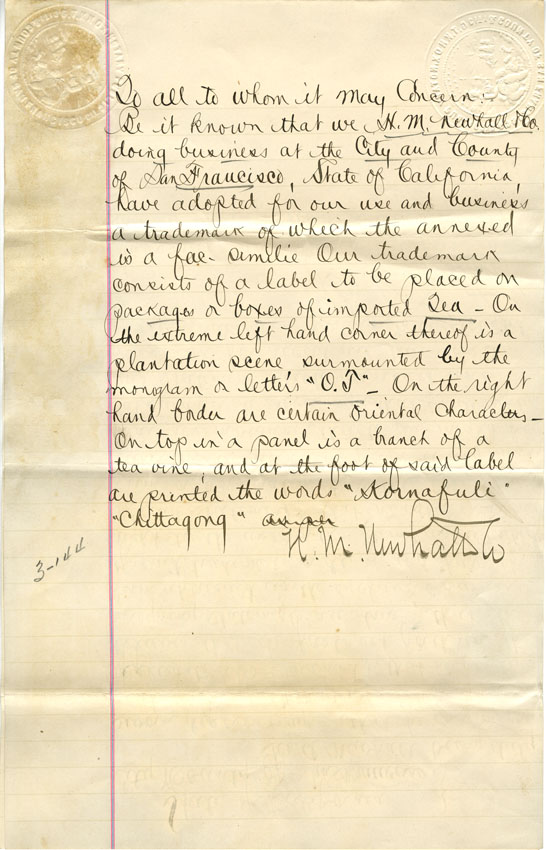 To all to whom it may Concern:
Be it known that we H. M. Newhall & Co.
doing business at the City and County
of San Francisco, State of California,
have adopted for our use and business
a trademark of which the annexed
is a fac-similie Our trademark
consists of a label to be placed on
packages or boxes of imported Tea – On
the extreme left hand corner thereof is a
plantation scene, surmounted by the
monogram or letters "O.T" – On the right
hand border are certain Oriental Characters –
On top in a panel is a branch of a
tea vine, and at the foot of said label
are printed the words "Kornafuli"
"Chittagong"
H. M. Newhall & Co
3-144